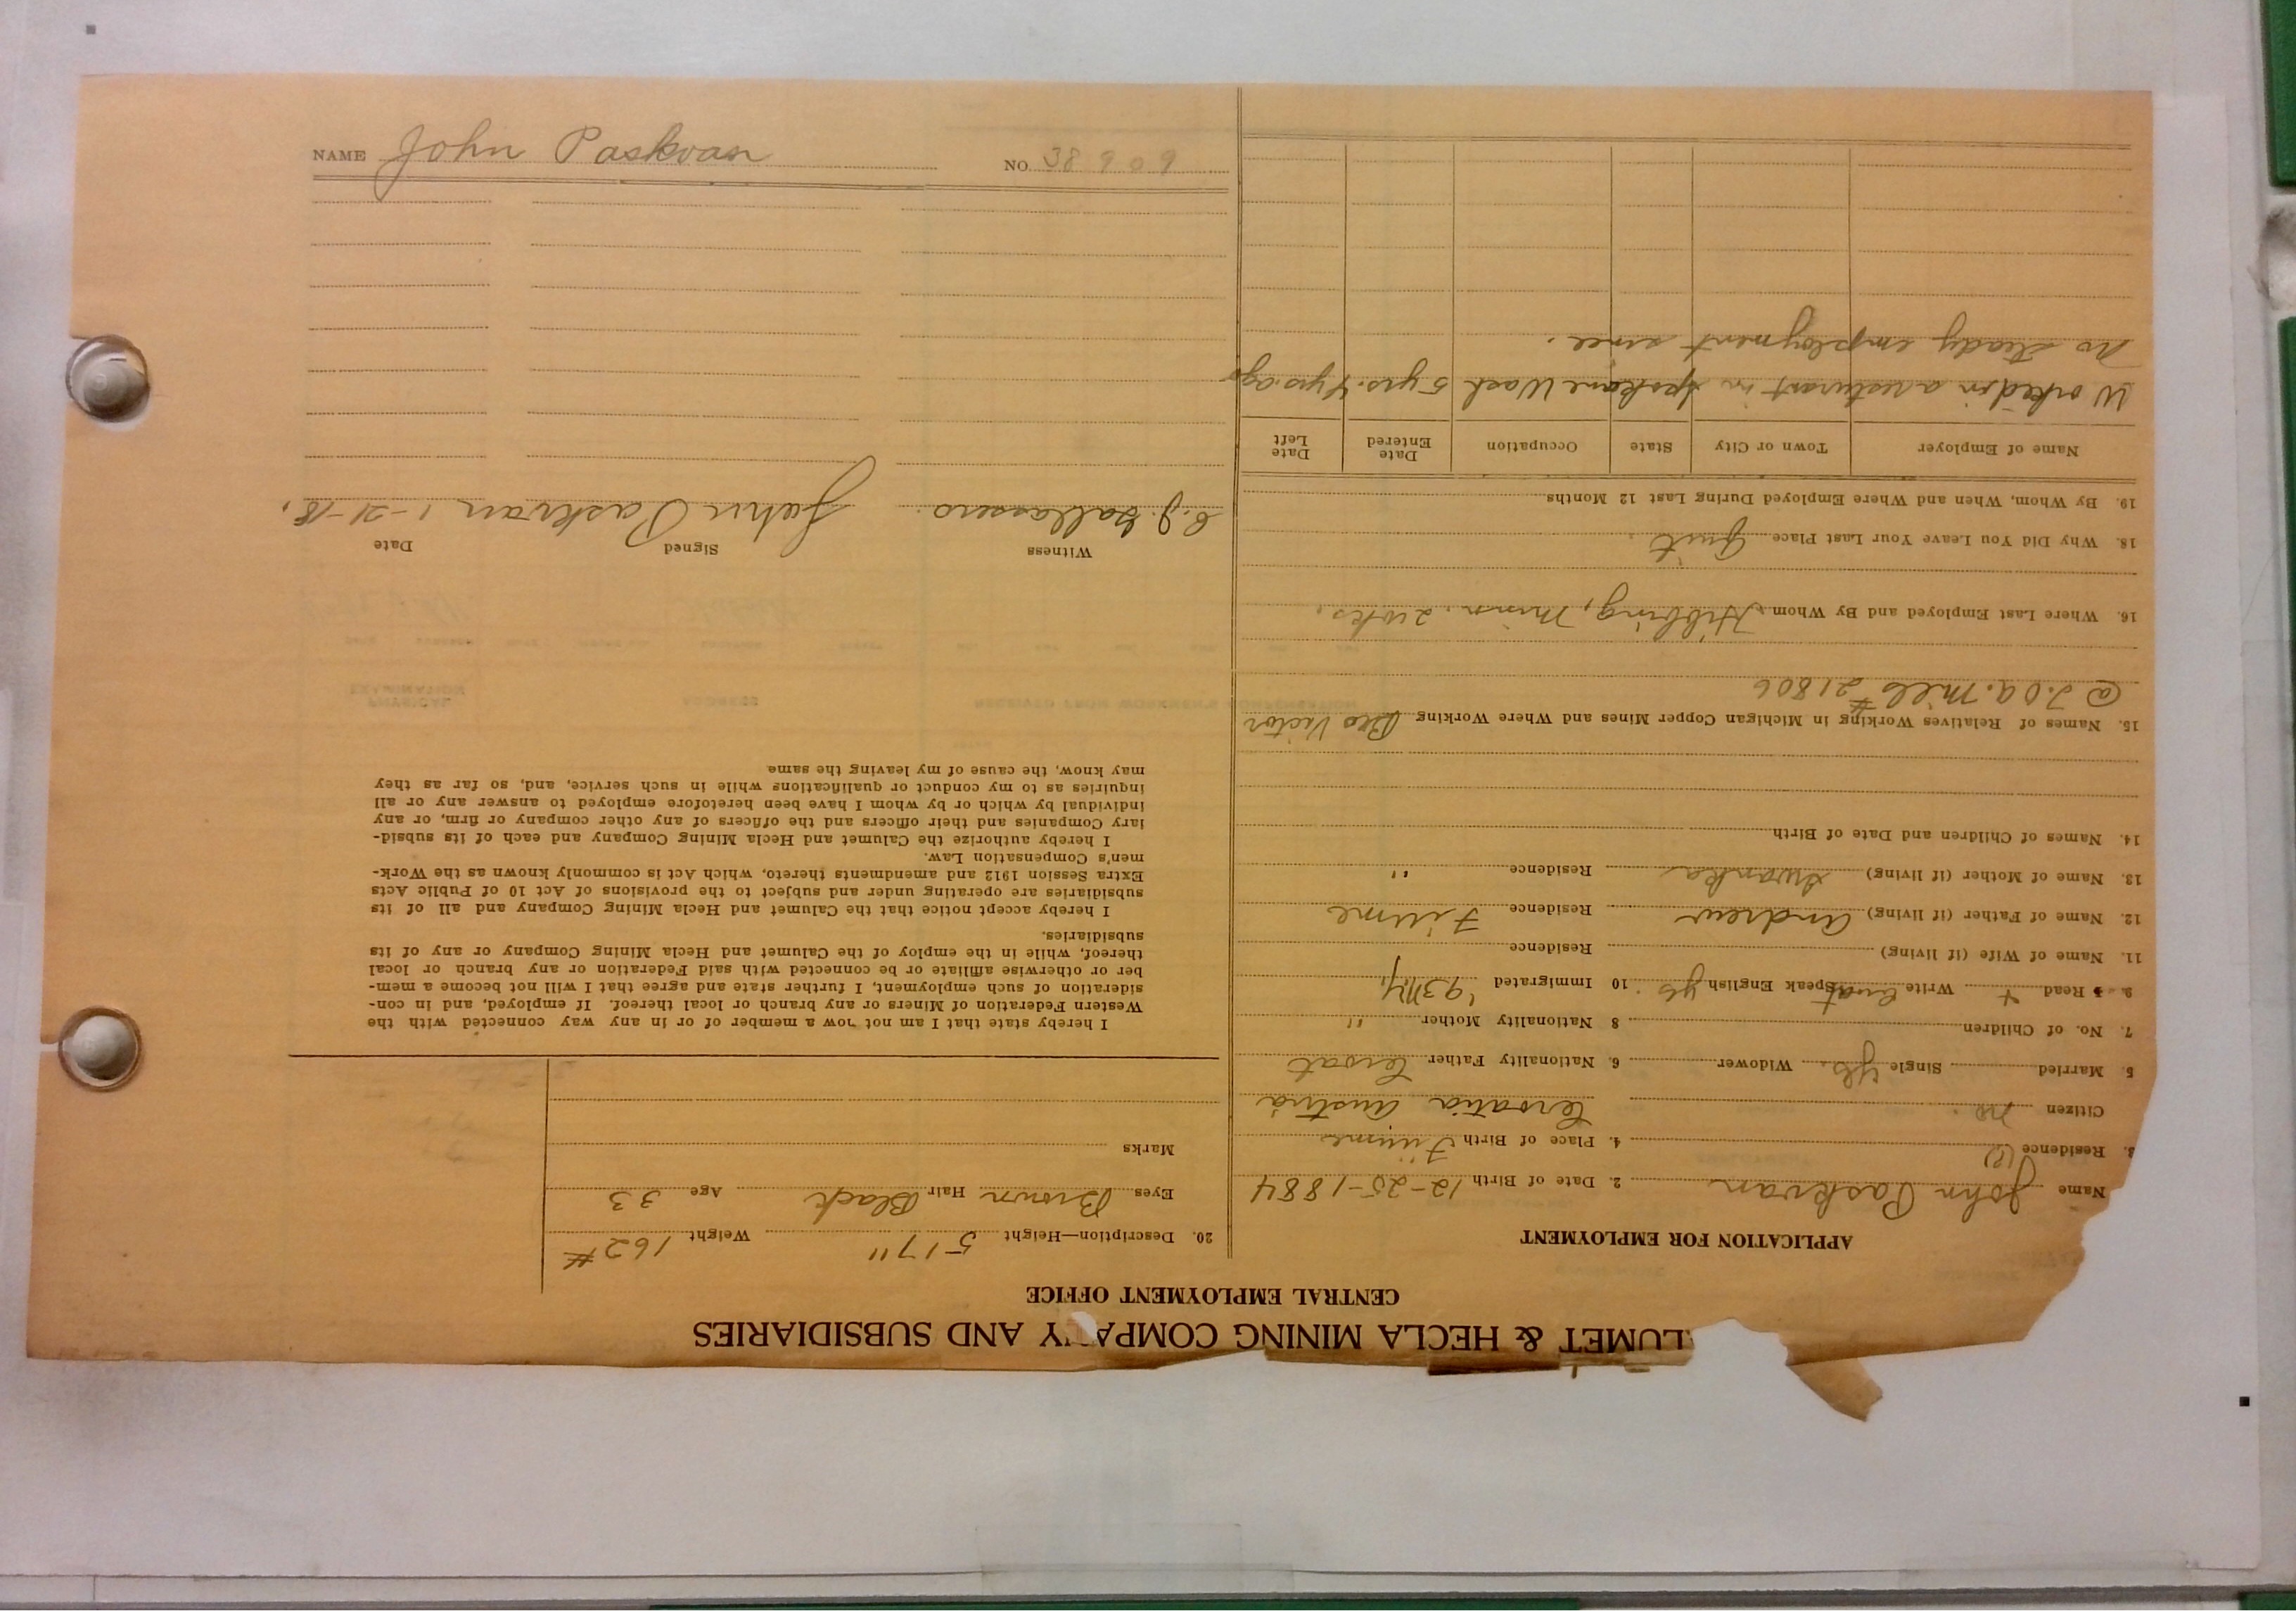 LUMET & HECLA MINING COMPANY AND SUBSIDIARIES
CENTRAL EMPLOYMENT OFFICE
APPLICATION FOR EMPLOYMENT
Name John Paskvan 2. Date of Birth 12-25-1884
3. Residence 4. Place of Birth Fiume
Citizen no. Croatia Austria
5. Married Single yes. Widower 6. Nationality Father Croat
7. No. of Children 8 Nationality Mother "
9. Read + Write Croat Speak English yes. 10 Immigrated
11. Name of Wife (if living) Residence
12. Name of Father (if living) Andrew Residence Fiume
13. Name of Mother (if living) Residence "
14. Names of Children and Date of Birth
15. Names of Relatives Working in Michigan Copper Mines and Where Working Bro Victor
@ Mill #21806
16. Where Last Employed and By Whom Hibbing, Minn. 2 wks.
18. Why Did You Leave Your Last Place Quit.
19. By Whom, When and Where Employed During Last 12 Months
Name of Employer Town or City State Occupation Date Entered Date Left
Worked in a resturant in Spokane Wash 5 yrs. 4 yrs. ago
No steady employment since.
20. Description—Height 5'7" Weight 162#
Eyes Brown Hair Black Age 33
Marks
I hereby state that I am not now a member of or in any way connected with the
Western Federation of Miners or any branch or local thereof. If employed, and in con-
sideration of such employment, I further state and agree that I will not become a mem-
ber or otherwise affiliate or be connected with said Federation or any branch or local
thereof, while in the employ of the Calumet and Hecla Mining Company or any of its
subsidiaries.
I hereby accept notice that the Calumet and Hecla Mining Company and all of its
subsidiaries are operating under and subject to the provisions of Act 10 of Public Acts
Extra Session 1912 and amendments thereto, which Act is commonly known as the Work-
men's Compensation Law.
I hereby authorize the Calumet and Hecla Mining Company and each of its subsid-
iary Companies and their officers and the officers of any other company or firm, or any
individual by which or by whom I have been heretofore employed to answer any or all
inquiries as to my conduct or qualifications while in such service, and, so far as they
may know, the cause of my leaving the same
Witness Signed Date
John Paskvan 1-21-18.
NAME John Paskvan NO. 38909